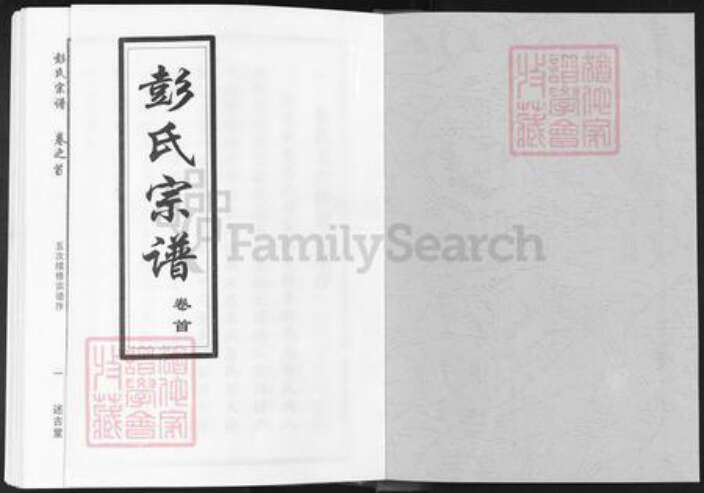 彭氏宗谱
卷首
彭氏宗谱
卷之首
五次续修宗谱序
一
述古堂
FamilySearch